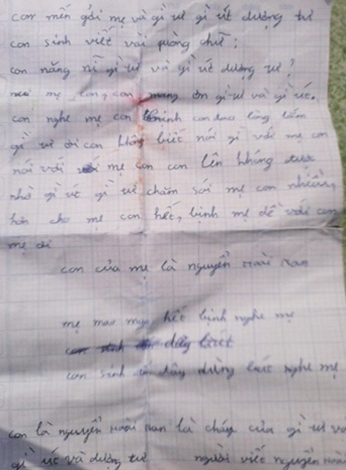 con mến gởi mẹ và gì tư gì út dượng tư
con sinh viết vài dòng chữ:
con năng nỉ gì tư và gì út dượng tư?
mẹ con, con mang ơn gì tư và gì út.
con nghe mẹ con bịnh con đau lòng lắm
gì tư ơi con không biết nói gì với mẹ con
nói với mẹ con con lên không được
nhờ gì út gì tư chăm sói mẹ con nhiều
hơn cho mẹ con hết, bịnh mẹ để với con
mẹ ơi
con của mẹ là nguyễn hoài nan
mẹ mao mao hết bịnh nghe mẹ
con sinh dây dừng biết nghe mẹ
con là nguyễn hoài nan là cháu của gì tư và
gì út và dượng tư người viết nguyễn